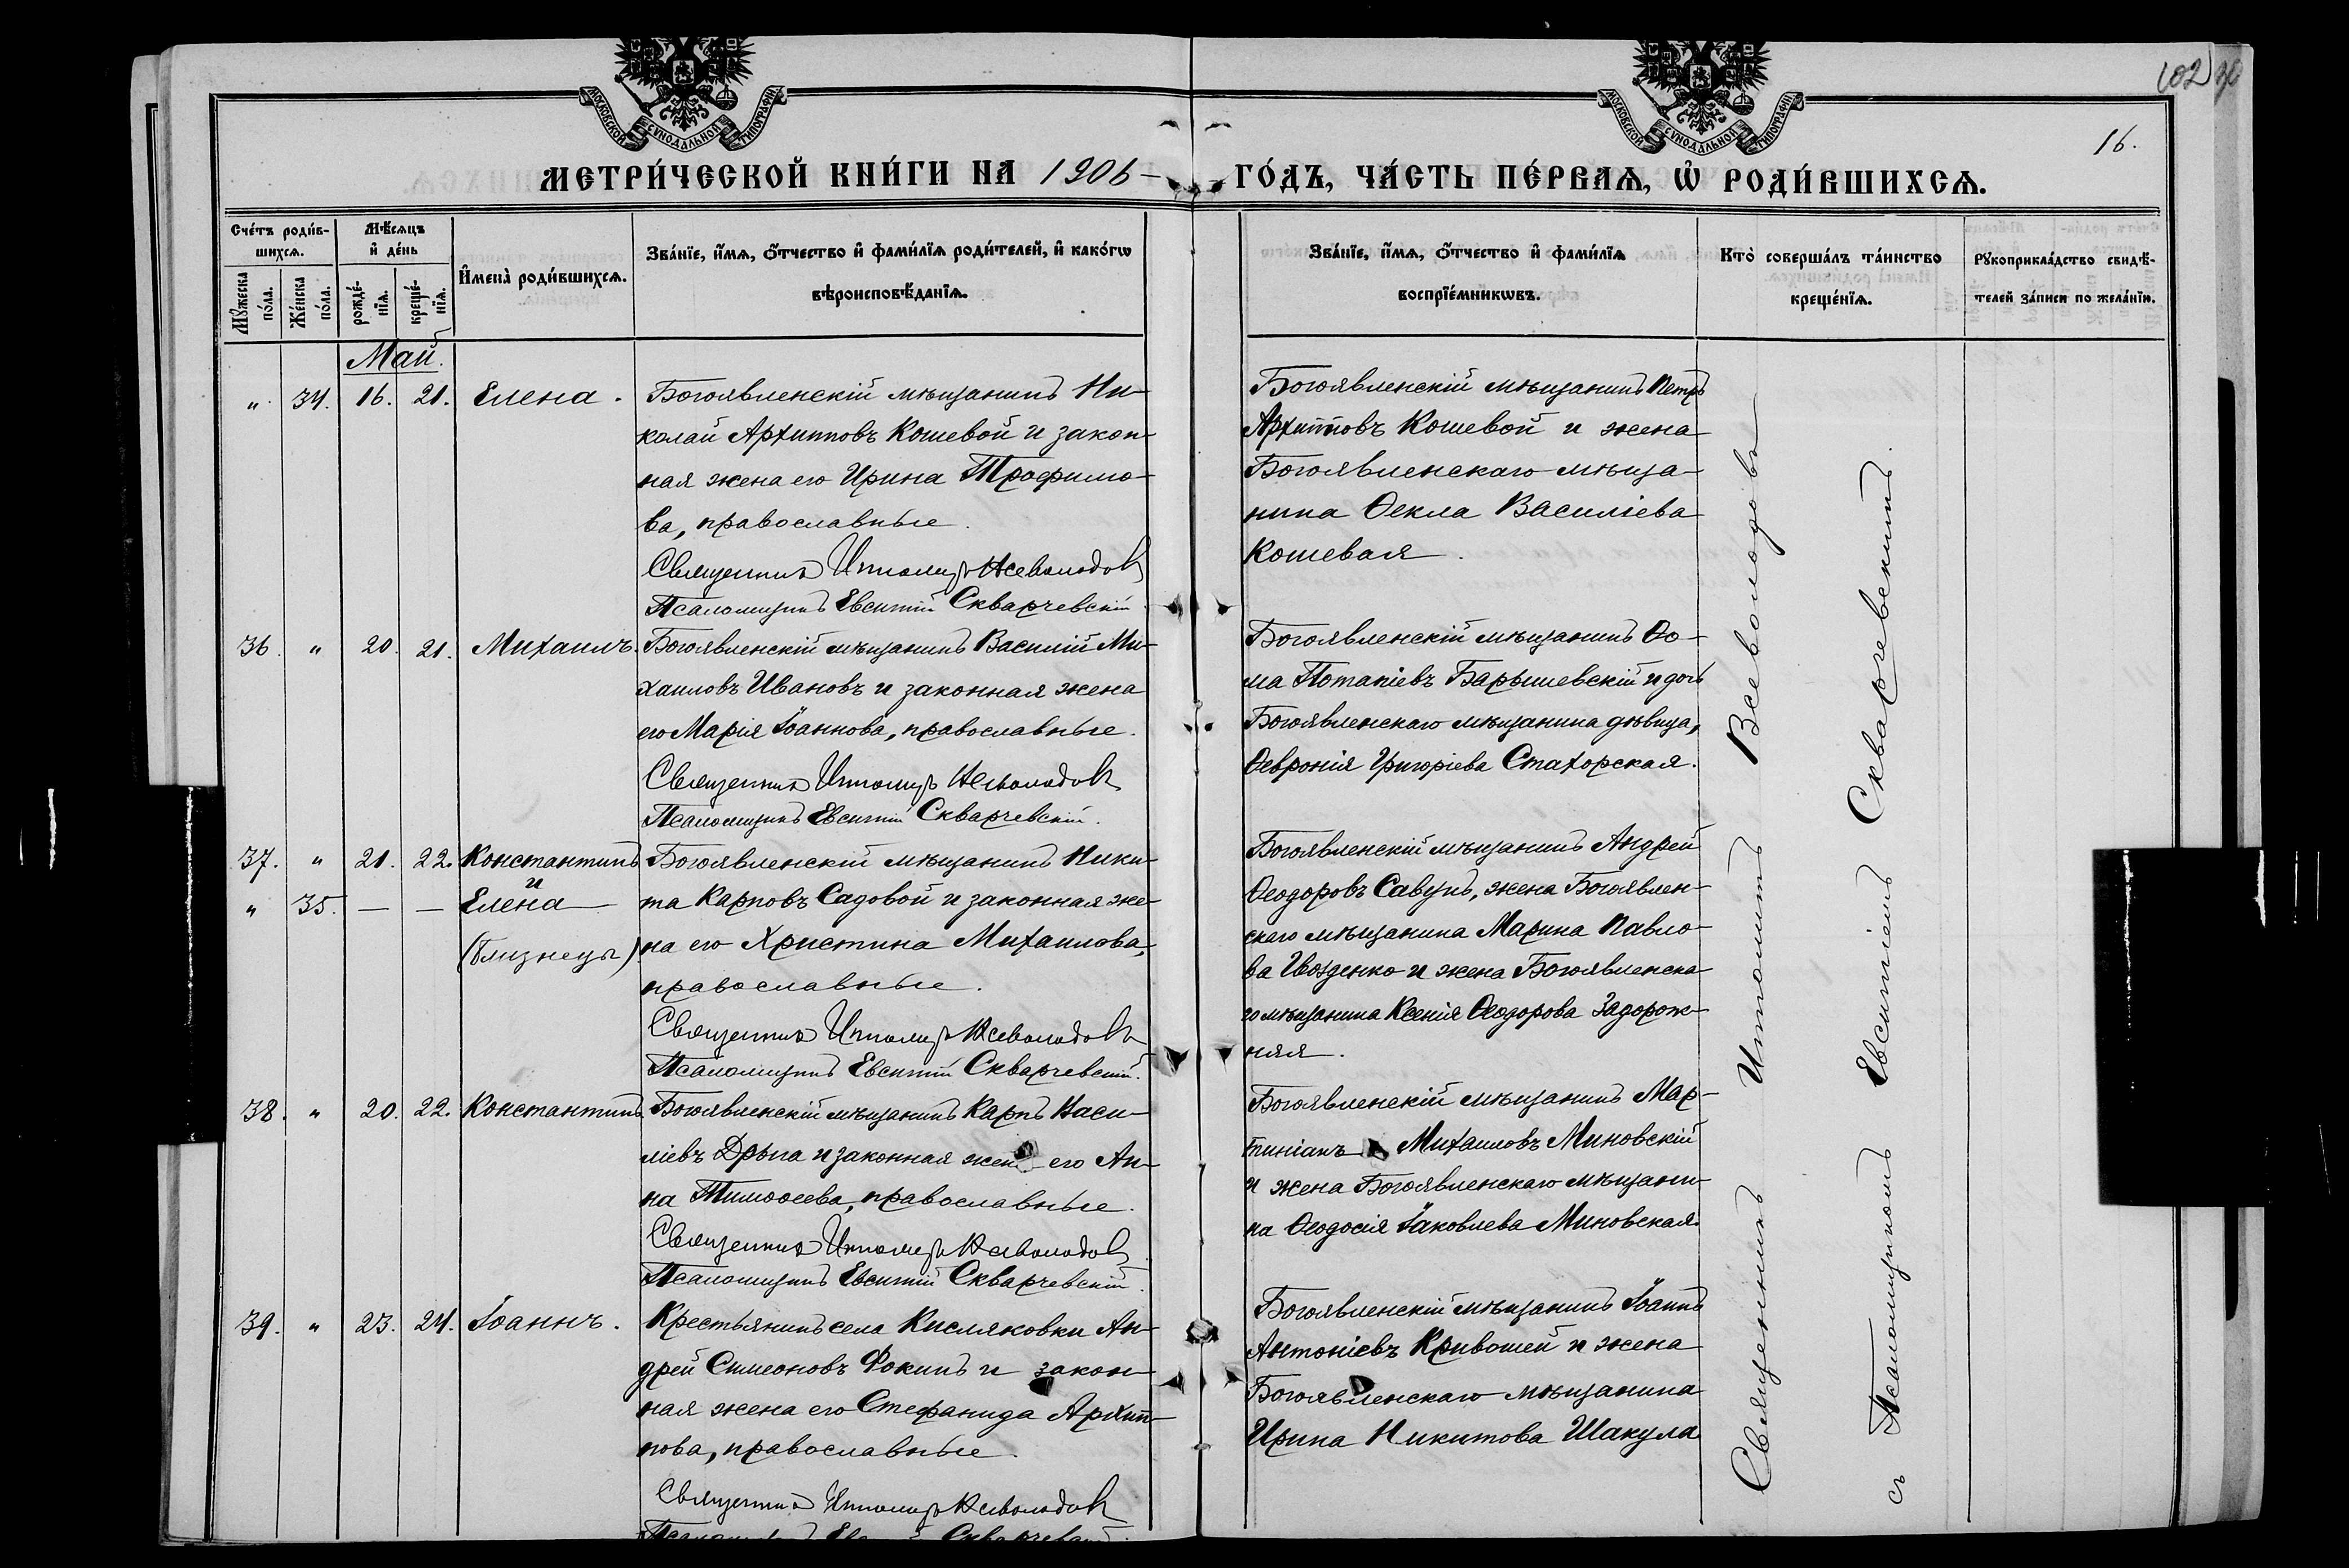 МОСКОВСКОЙ СѴНОДАЛЬНОЙ ТИПОГРАФІИ
МОСКОВСКОЙ СѴНОДАЛЬНОЙ ТИПОГРАФІИ
102
16.
МЕТРИ́ЧЕСКОЙ КНИ́ГИ НА 1906 ГО́ДЪ, ЧА́СТЬ ПЕ́РВАѦ, Ѡ҆ РОДИ́ВШИХСѦ.
Сче́тъ роди́в-
шихсѧ.
Мꙋ́жеска по́ла.
Же́нска по́ла.
Мѣ́сяцъ
и҆ де́нь
рожде́-
нїѧ.
креще́-
нїѧ.
И҆мена̀ роди́вшихсѧ.
Зва́нїе, и҆́мѧ, ѻ҆́тчество и҆ фами́лїѧ роди́телей, и҆ како́гѡ
вѣроисповѣ́данїѧ.
Зва́нїе, и҆́мѧ, ѻ҆́тчество и҆ фами́лїѧ
воспрїе́мникѡвъ.
Кто̀ соверша́лъ та́инство
креще́нїѧ.
Рꙋкоприкла́дство свидѣ́-
телей за́писи по жела́нїю.
Май.
" 34. 16. 21. Елена.
Богоявленскій мѣщанинъ Ни-
колай Архипповъ Кошевой и закон-
ная жена его Ирина Трофимо-
ва, православные.
Священникъ Ипполитъ Всеволодовъ
Псаломщикъ Евсигній Скваржевскій
Богоявленскій мѣщанинъ Петръ
Архипповъ Кошевой и жена
Богоявленскаго мѣща-
нина Ѳекла Василіева
Кошевая.
36. " 20. 21. Михаилъ.
Богоявленскій мѣщанинъ Василій Ми-
хаиловъ Ивановъ и законная жена
его Марія Іоаннова, православные.
Священникъ Ипполитъ Всеволодовъ
Псаломщикъ Евсигній Скваржевскій.
Богоявленскій мѣщанинъ Ѳо-
ма Потапіевъ Барышевскій и дочь
Богоявленскаго мѣщанина дѣвица,
Февронія Григоріева Стахорская.
37. " 21. 22. Константинъ
и
" 35. — — Елена
(близнецы)
Богоявленскій мѣщанинъ Ники-
та Карповъ Садовой и законная же-
на его Христина Михаилова,
православные.
Священникъ Ипполитъ Всеволодовъ
Псаломщикъ Евсигній Скваржевскій.
Богоявленскій мѣщанинъ Андрей
Ѳеодоровъ Савунъ, жена Богоявлен-
скаго мѣщанина Марина Павло-
ва Гвозденко и жена Богоявленска-
го мѣщанина Ксенія Ѳеодорова Задорож-
няя.
38. " 20. 22. Константинъ
Богоявленскій мѣщанинъ Карпъ Васи-
ліевъ Дрыга и законная жена его Ан-
на Тимоѳеева, православные.
Священникъ Ипполитъ Всеволодовъ
Псаломщикъ Евсигній Скваржевскій.
Богоявленскій мѣщанинъ Мар-
тиніанъ Михаиловъ Миновскій
и жена Богоявленскаго мѣщани-
на Ѳеодосія Іаковлева Миновская.
39. " 23. 24. Іоаннъ.
Крестьянинъ села Кисляковки Ан-
дрей Симеоновъ Фокинъ и закон-
ная жена его Стефанида Архип-
пова, православные.
Священникъ Ипполитъ Всеволодовъ
Псаломщикъ Евсигній Скваржевскій.
Богоявленскій мѣщанинъ Іоаннъ
Антоніевъ Кривошей и жена
Богоявленскаго мѣщанина
Ирина Никитова Шакула
Священникъ Ипполитъ Всеволодовъ
съ Псаломщикомъ Евсигніемъ Скваржевскимъ.